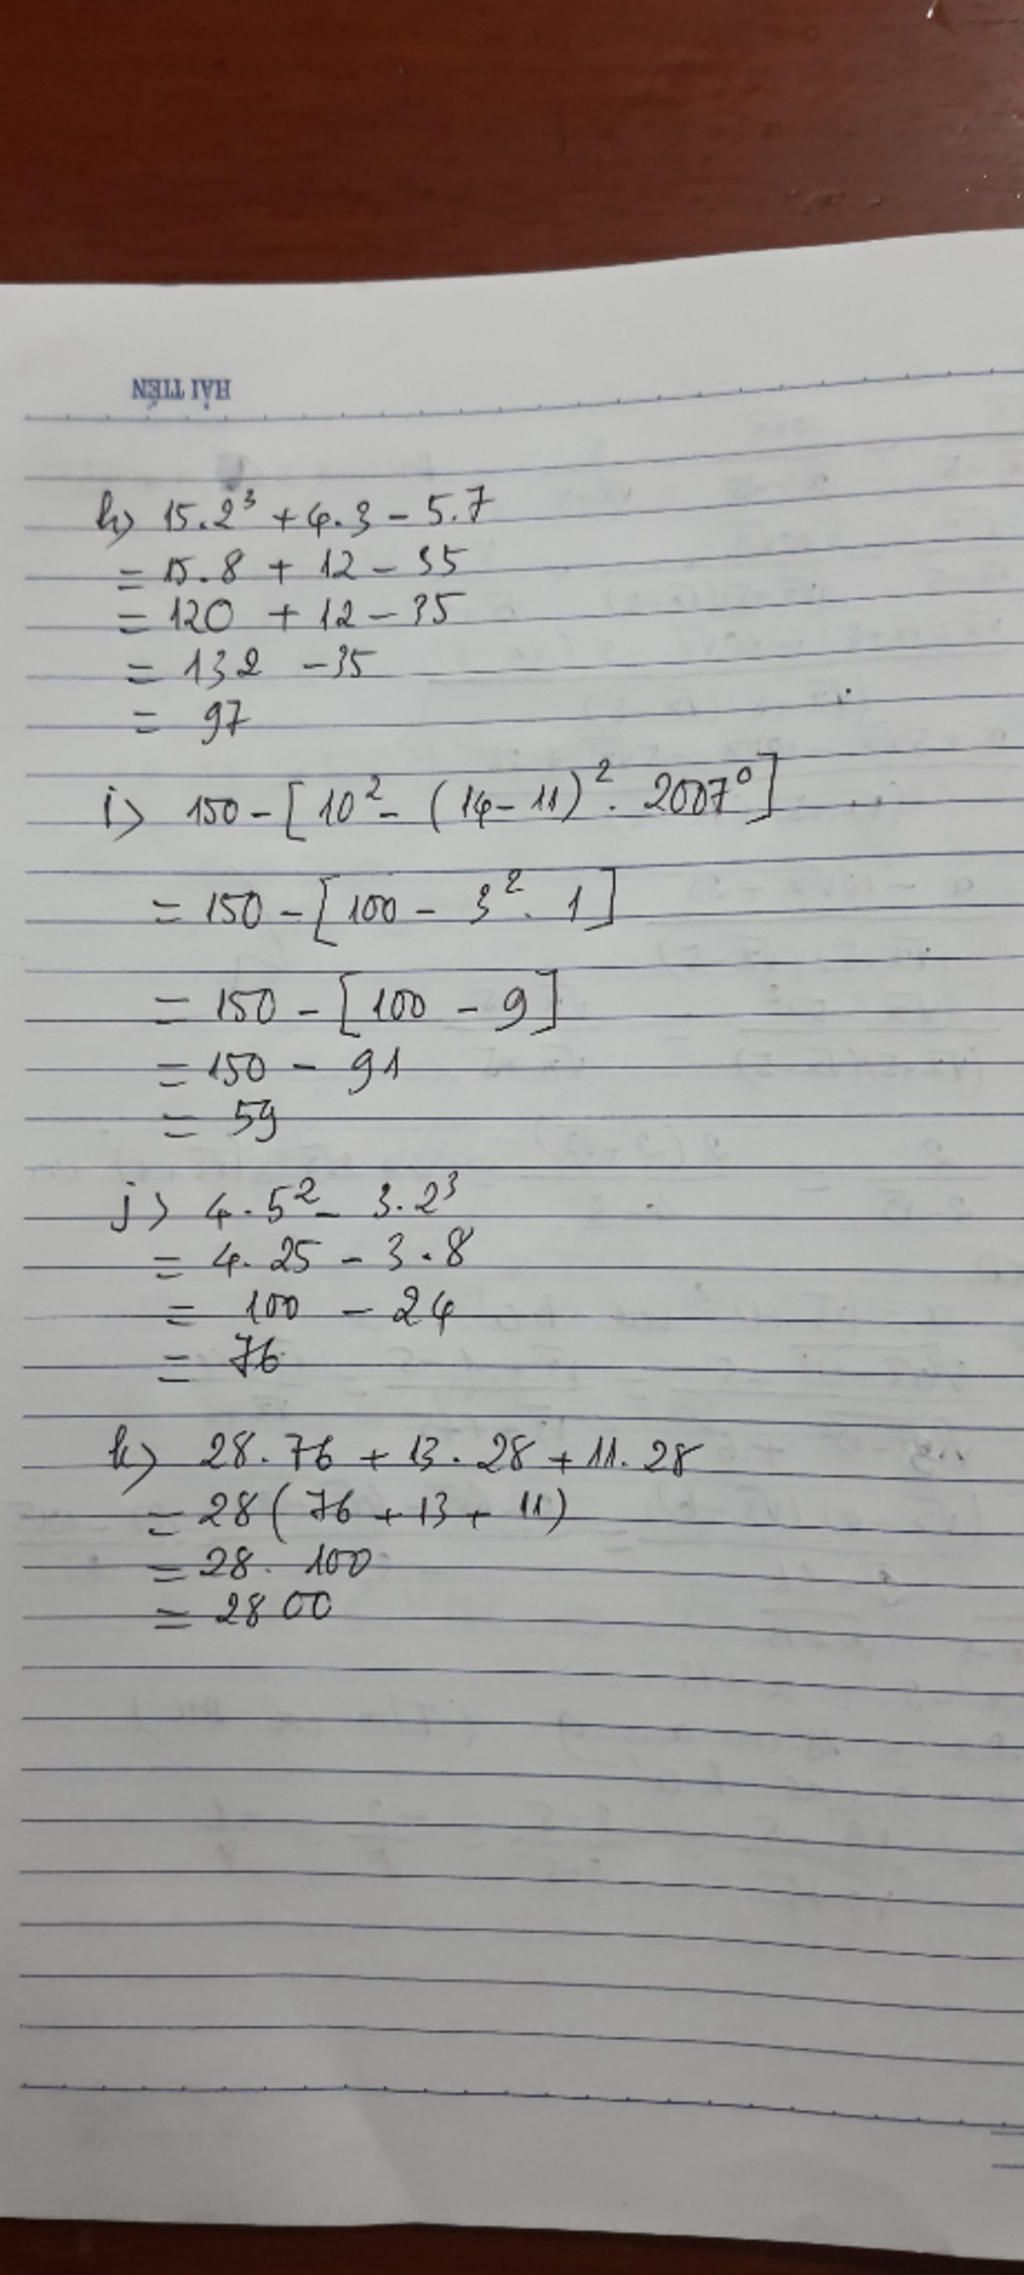 HẢI TIẾN
h) 15.2³ + 4.3 - 5.7
= 15.8 + 12 - 35
= 120 + 12 - 35
= 132 - 35
= 97
i) 150 - [10² - (14 - 11)² . 2007⁰]
= 150 - [100 - 3² . 1]
= 150 - [100 - 9]
= 150 - 91
= 59
j) 4.5² - 3.2³
= 4.25 - 3.8
= 100 - 24
= 76
k) 28.76 + 13.28 + 11.28
= 28(76 + 13 + 11)
= 28.100
= 2800